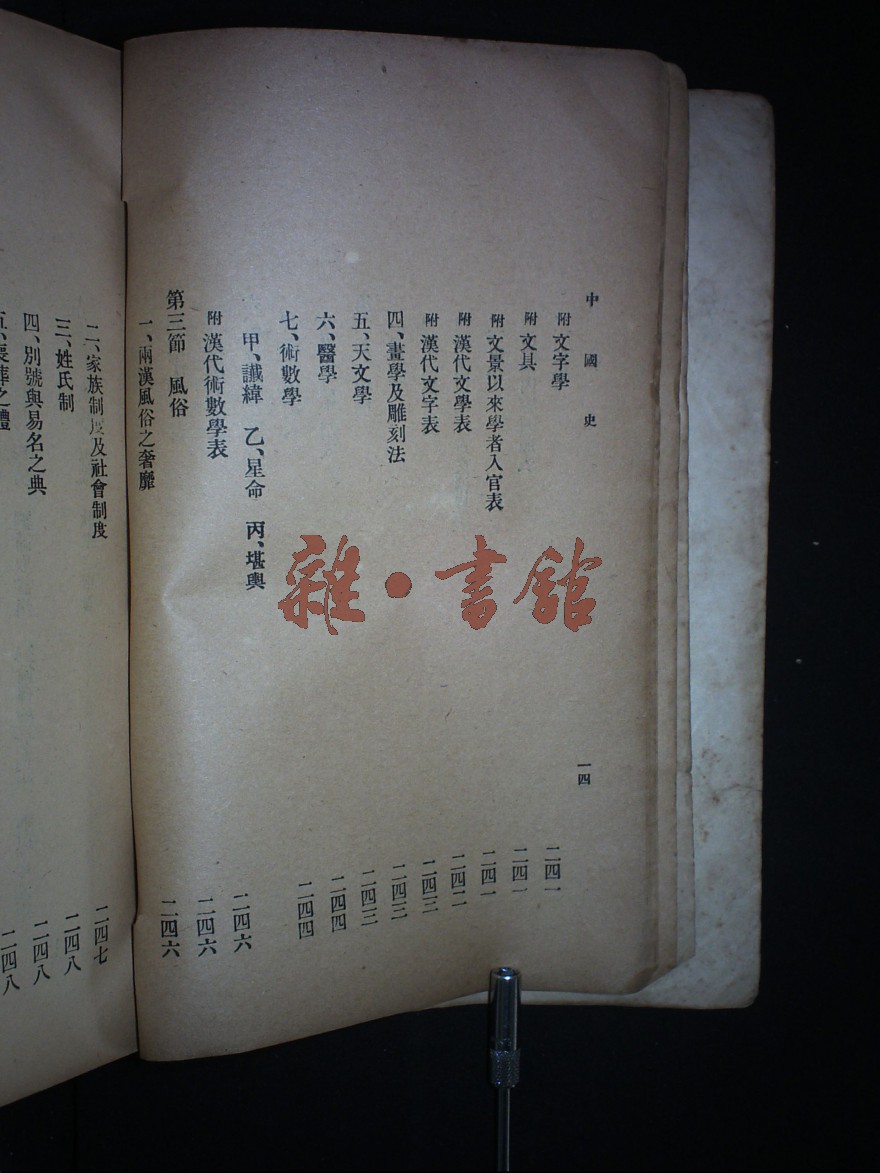 中國史 一四
附 文字學 二四一
附 文具 二四一
附 文景以來學者入官表 二四一
附 漢代文學表 二四二
附 漢代文字表 二四三
四、畫學及雕刻法 二四三
五、天文學 二四三
六、醫學 二四四
七、術數學 二四四
甲、讖緯 乙、星命 丙、堪輿
附 漢代術數學表 二四六
第三節 風俗 二四六
一、兩漢風俗之奢靡 二四六
二、家族制度及社會制度 二四七
三、姓氏制 二四八
四、別號與易名之典 二四八
五、喪葬之禮 二四八
雜·書館